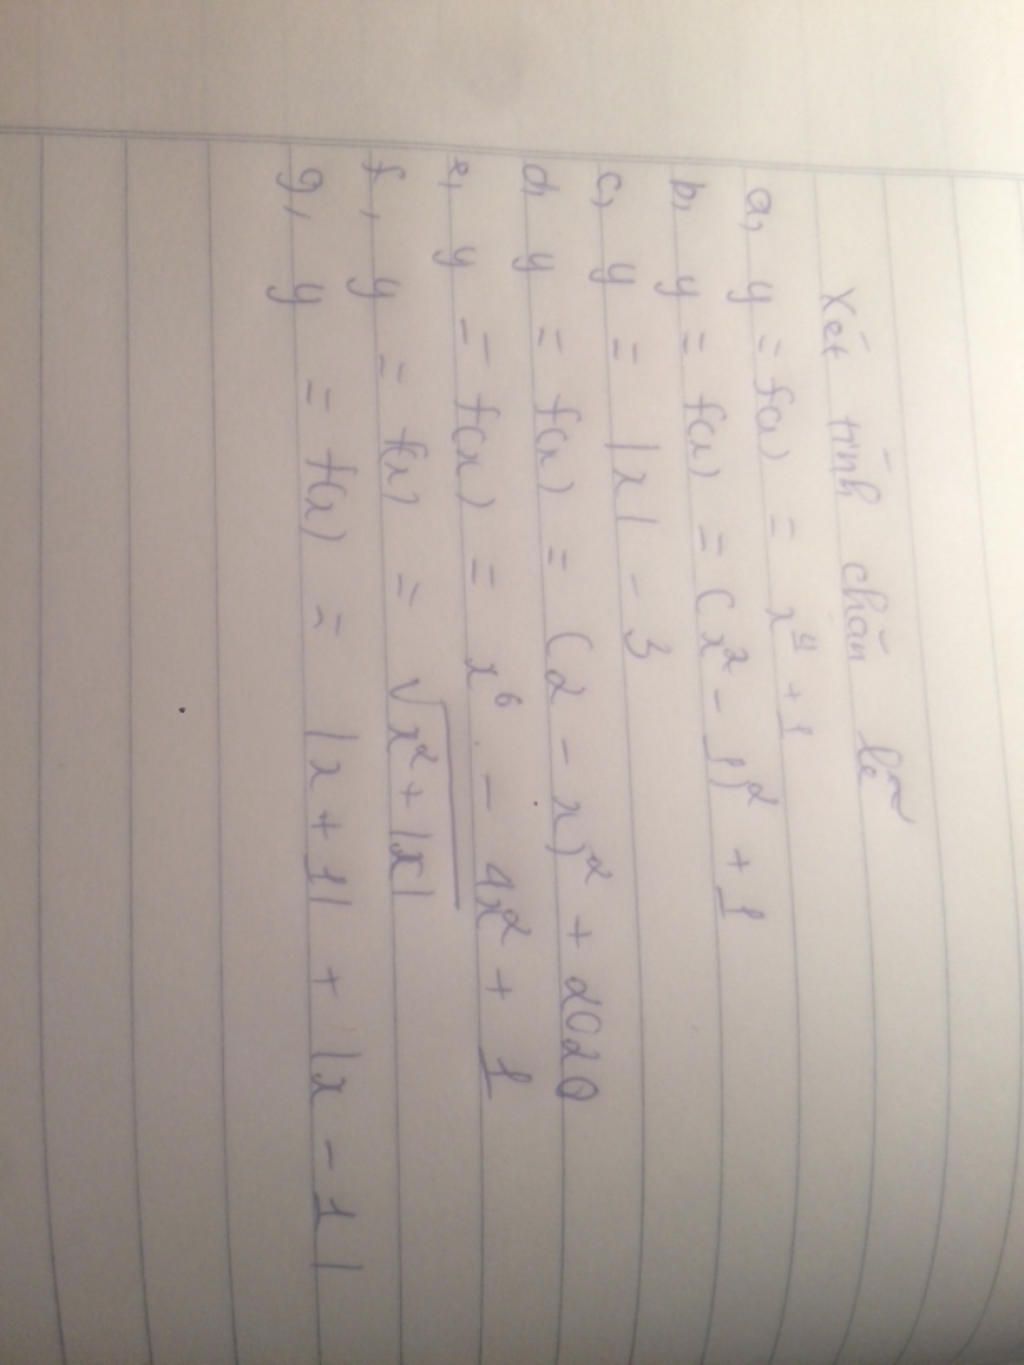 Xét tính chẵn lẽ
a, y = f(x) = x⁴ + 1
b, y = f(x) = (x² - 1)² + 1
c, y = |x| - 3
d, y = f(x) = (2 - x)² + 2020
e, y = f(x) = x⁶ - 4x² + 1
f, y = f(x) = √(x² + |x|)
g, y = f(x) = |x + 1| + |x - 1|